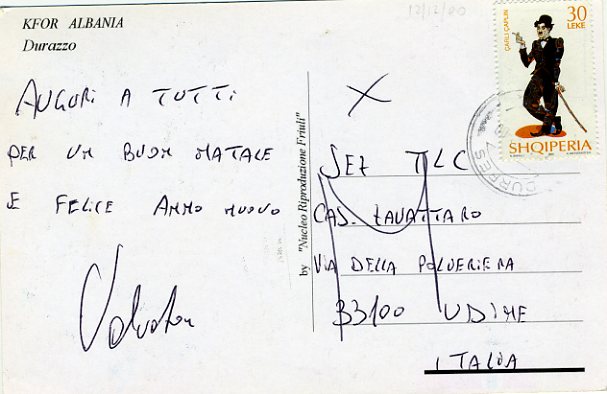 KFOR ALBANIA
Durazzo
12/12/00
ÇARLI ÇAPLIN
30
LEKE
SHQIPERIA
DURRES
AUGURI A TUTTI
PER UN BUON NATALE
E FELICE ANNO NUOVO
by "Nucleo Riproduzione Friuli"
X
SEZ TLC
CAS. ZAVATTARO
VIA DELLA POLVERIERA
33100 UDINE
ITALIA